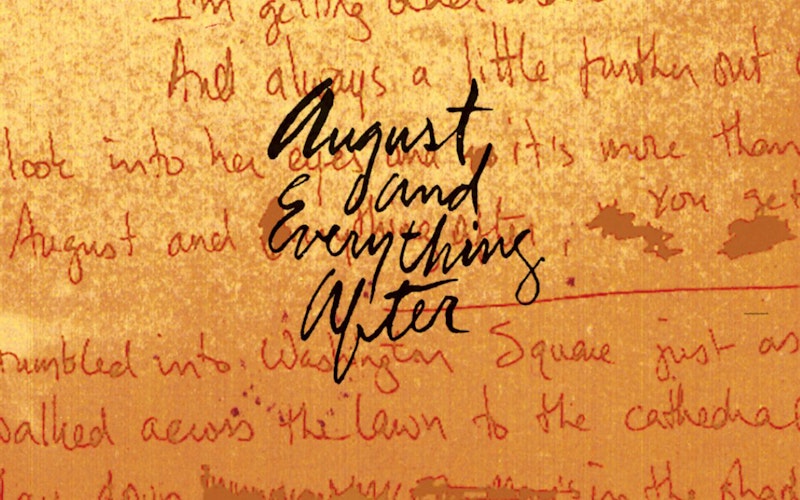 I'm getting older
And always a little further out
look into her eyes and it's more than
August and after, You get
August
and
Everything
After
tumbled into Washington Square just as
walked across the lawn to the cathedral
down in the shad